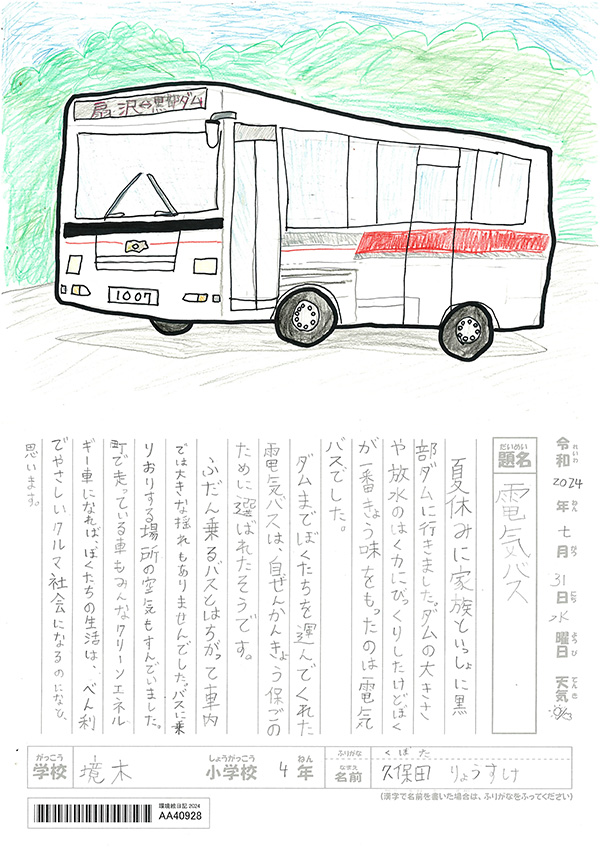 扇沢⇔黒部ダム
1007
令和2024年七月31日水曜日 天気
れいわ ねん がつ にち ようび てんき
だいめい
題名
電気バス
夏休みに家族といっしょに黒
部ダムに行きました。ダムの大きさ
や放水のはく力にびっくりしたけどぼく
が一番きょう味をもったのは電気
バスでした。
ダムまでぼくたちを運んでくれた
電気バスは、自ぜんかんきょう保ごの
ために選ばれたそうです。
ふだん乗るバスとはちがって車内
では大きな揺れもありませんでした。バスに乗
りおりする場所の空気もすんでいました。
町で走っている車もみんなクリーンエネル
ギー車になれば、ぼくたちの生活は、べん利
でやさしいクルマ社会になるのになと、
思います。
がっこう
学校
境木
しょうがっこう
小学校
4
ねん
年
ふりがな
くぼた
なまえ
名前
久保田 りょうすけ
(漢字で名前を書いた場合は、ふりがなをふってください)
環境絵日記2024
AA40928